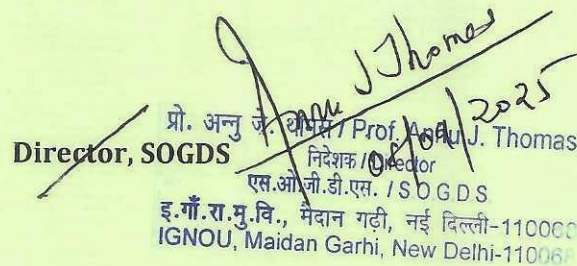 Annu J Thomas
08/09/2025
प्रो. अन्नु जे. थॉमस / Prof. Annu J. Thomas
Director, SOGDS
निदेशक / Director
एस.ओ.जी.डी.एस. / S O G D S
इ.गाँ.रा.मु.वि., मैदान गढ़ी, नई दिल्ली-110068
IGNOU, Maidan Garhi, New Delhi-110068